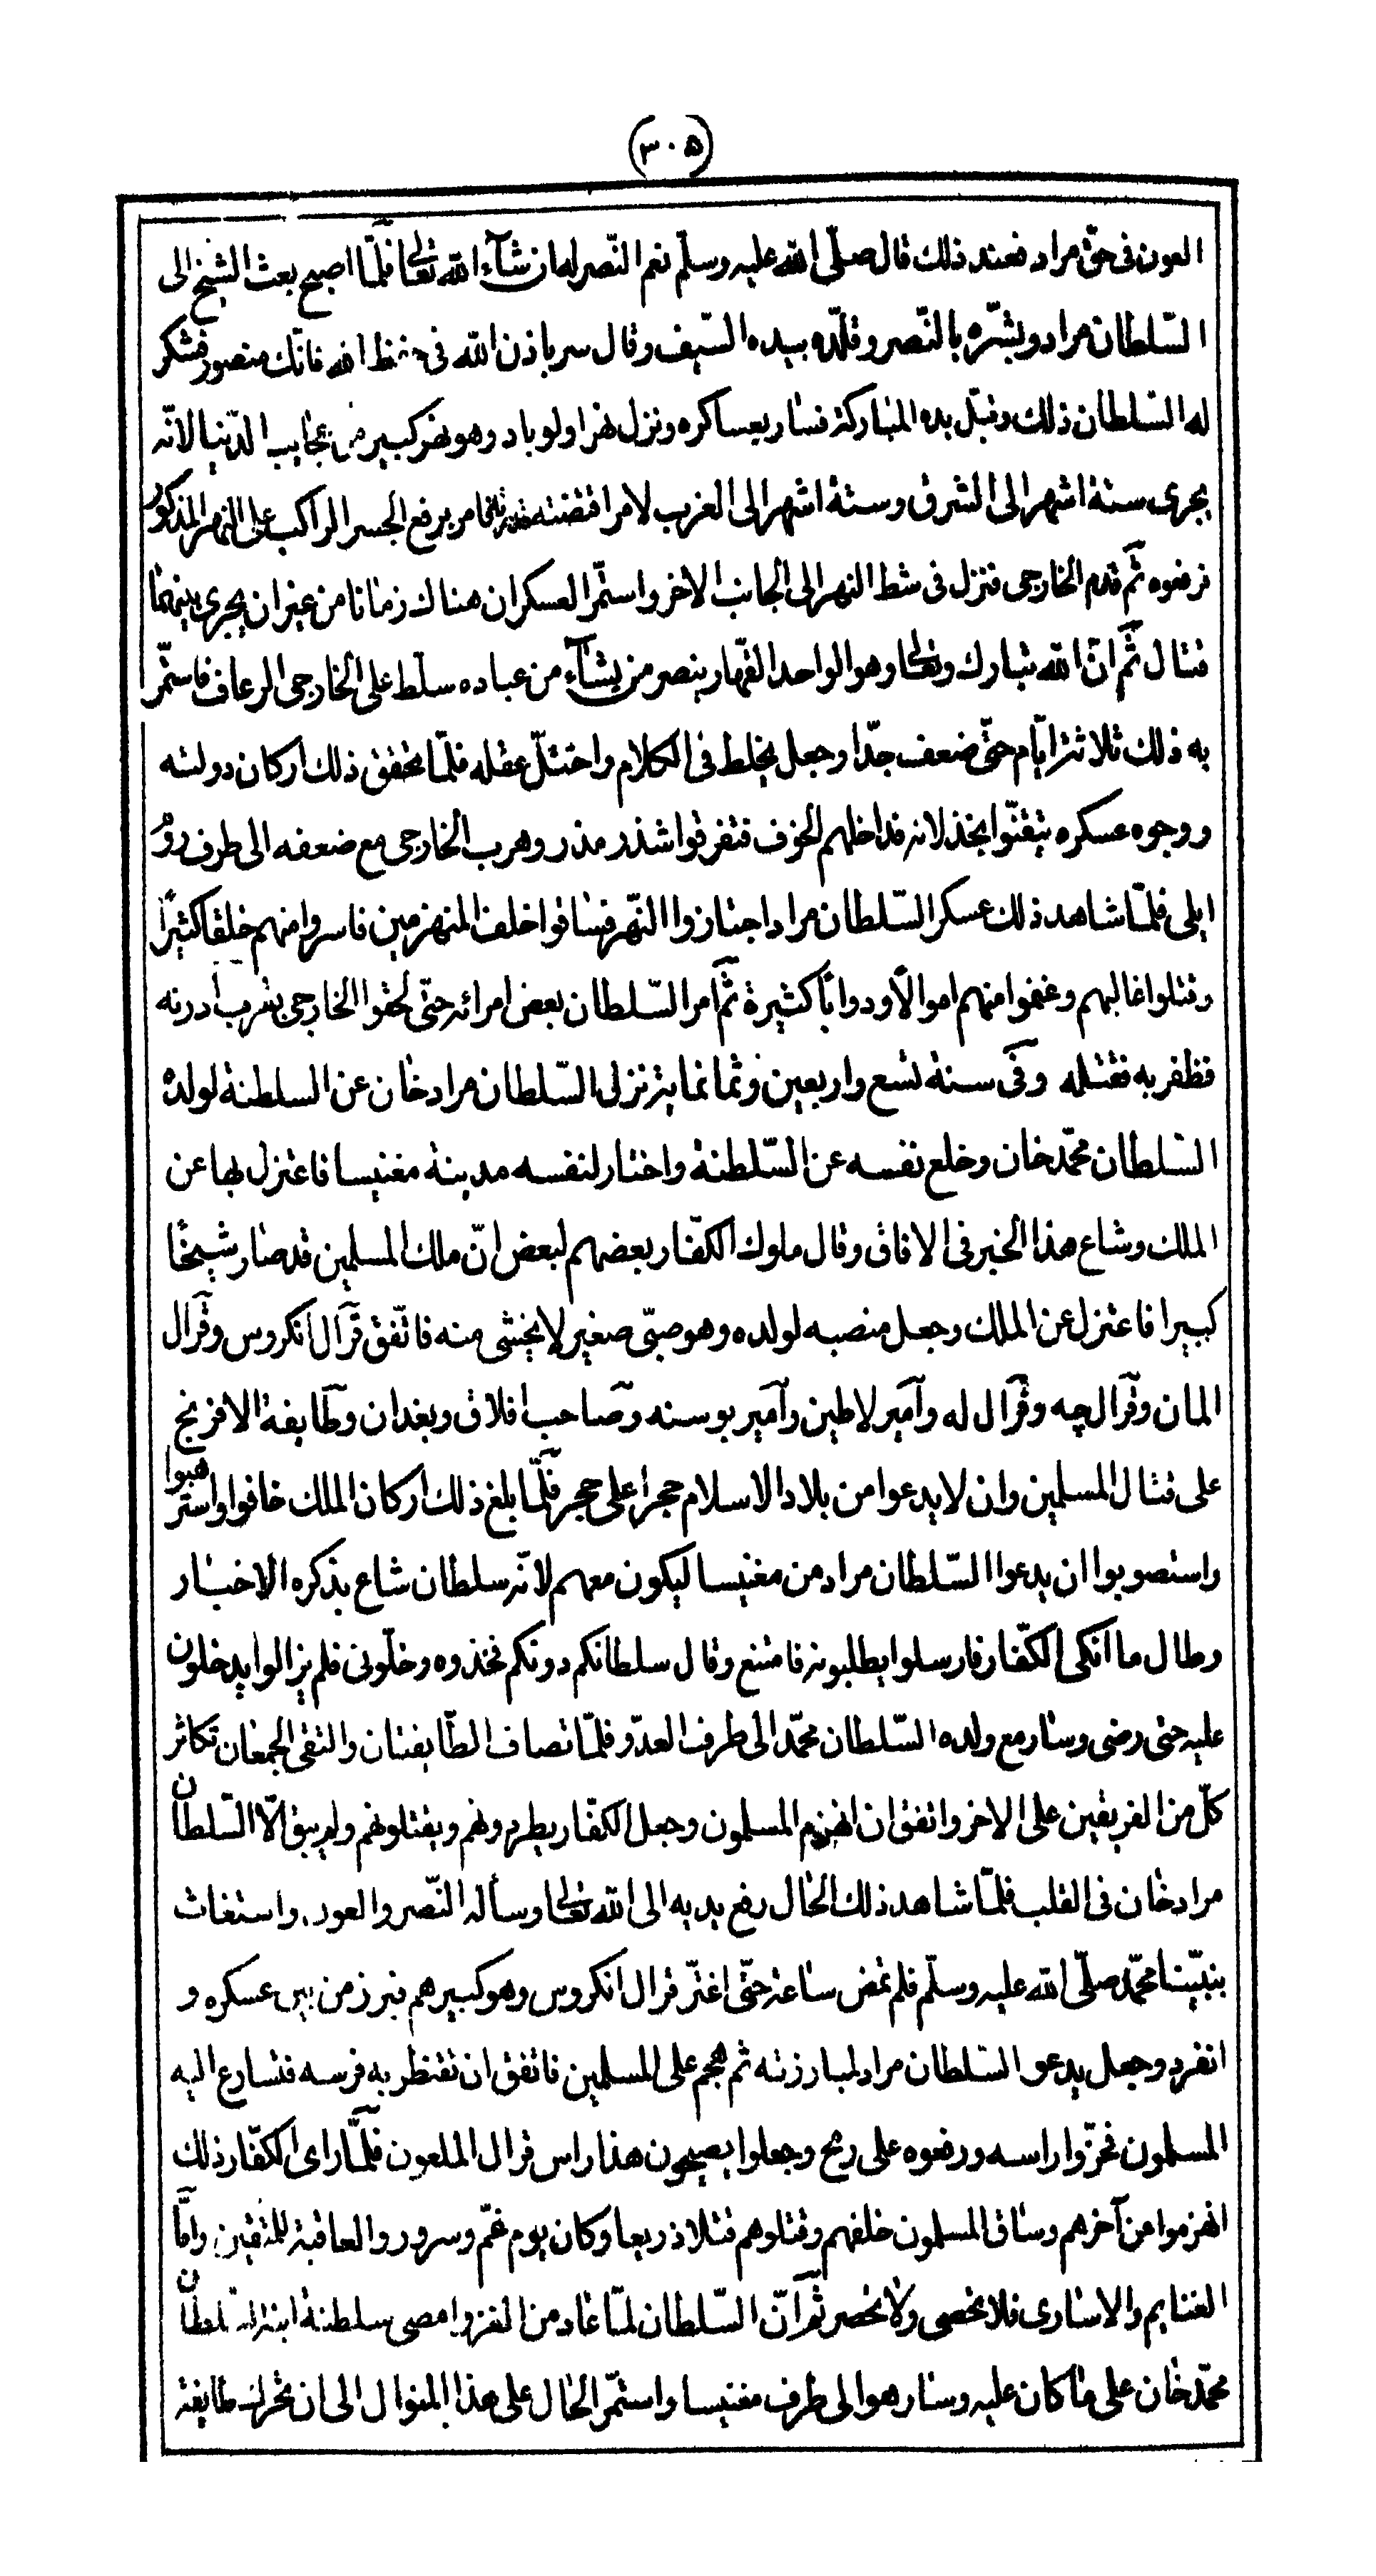 (٣٠٥)
العون فى حقّ مراد فعند ذلك قال صلّى الله عليه وسلّم نعم النّصر له ان شآء الله تعالى فلمّا اصبح بعث الشيخ الى
السّلطان مراد وبشّره بالنّصر وقلّده بيده السّيف وقال سر باذن الله فى حفظ الله فانّك منصور فشكر
له السّلطان ذلك وقبّل يده المباركة فسار بعساكره ونزل نهر اولوباد وهو نهر كبير من عجايب الدّنيا لانّه
يجرى ستة اشهر الى الشرق وستة اشهر الى الغرب لامر اقتضته قدرته فامر برفع الجسر الراكب على النهر المذكور
فرفعوه ثمّ قدم الخارجى فنزل فى شط النهر الى الجانب الاخر واستمّر العسكران هناك زمانا من غير ان يجرى بينهما
قتال ثمّ انّ الله تبارك وتعالى وهو الواحد القهّار ينصر من يشآء من عباده سلّط على الخارجى الرعاف فاستمّر
به ذلك ثلاثة ايّام حتّى ضعف جدّا وجعل يخلط فى الكلام واختلّ عقله فلمّا تحقق ذلك اركان دولته
ووجوه عسكره تيقنّوا بخذلانه فداخلهم الخوف فتفرقوا شذر مذر وهرب الخارجى مع ضعفه الى طرف روم
ايلى فلمّا شاهد ذلك عسكر السّلطان مراد اجتازوا النّهر فساقوا خلف المنهزمين فاسروا منهم خلقا كثيرًا
وقتلوا غالبهم وغنموا منهم اموالًا ودوابًا كثيرة ثمّ امر السّلطان بعض امرائه حتّى لحقوا الخارجى بقرب ادرنه
فظفر به فقتله وفى سنة تسع واربعين وثمانماية نزل السّلطان مراد خان عن السلطنة لولده
السّلطان محمّد خان وخلع نفسه عن السّلطنة واختار لنفسه مدينة مغنيسا فاعتزل بها عن
الملك وشاع هذا الخبر فى الافاق وقال ملوك الكفّار بعضهم لبعض انّ ملك المسلمين قد صار شيخًا
كبيرا فاعتزل عن الملك وجعل منصبه لولده وهو صبّى صغير لا يخشى منه فاتّفق قرال انكروس وقرال
المان وقرال چه وقرال له وامير لاطين وامير بوسنه وصاحب افلاق وبغدان وطايفة الافرنج
على قتال المسلمين وان لا يدعوا من بلاد الاسلام حجرا على حجر فلمّا بلغ ذلك اركان الملك خافوا واسترهبوا
واستصوبوا ان يدعوا السّلطان مراد من مغنيسا ليكون معهم لانّه سلطان شاع بذكره الاخبار
وطال ما انكى الكفّار فارسلوا يطلبونه فامتنع وقال سلطانكم دونكم فخذوه وخلّونى فلم يزالوا يدخلون
عليه حتى رضى وسار مع ولده السّلطان محمّد الى طرف العدّو فلمّا تصاف الطّايفتان والتقى الجمعان تكاثر
كلّ من الفريقين على الاخر واتفق ان انهزم المسلمون وجعل الكفّار يطردونهم ويقتلونهم ولم يبق الّا السّلطان
مراد خان فى القلب فلمّا شاهد ذلك الحال رفع يديه الى الله تعالى وسأله النّصر والعون واستغاث
بنبيّنا محمّد صلّى الله عليه وسلّم فلم تمض ساعة حتّى اغترّ قرال انكروس وهو كبيرهم فبرز من بين عسكره و
انفرد وجعل يدعو السّلطان مراد لمبارزته ثم هجم على المسلمين فاتفق ان تقنطر به فرسه فتسارع اليه
المسلمون فحزّوا راسه ورفعوه على رمح وجعلوا يصيحون هذا راس قرال الملعون فلمّا راى الكفّار ذلك
انهزموا من آخرهم وساق المسلمون خلفهم وقتلوهم قتلا ذريعا وكان يوم غمّ وسرور والعاقبة للمتقين وامّا
الغنايم والاسارى فلا تحصى ولا تحصر ثم انّ السّلطان لمّا عاد من الغزو امضى سلطنة ابنه السّلطان
محمّد خان على ما كان عليه وسار هو الى طرف مغنيسا واستمّر الحال على هذا المنوال الى ان تحرك طايفة